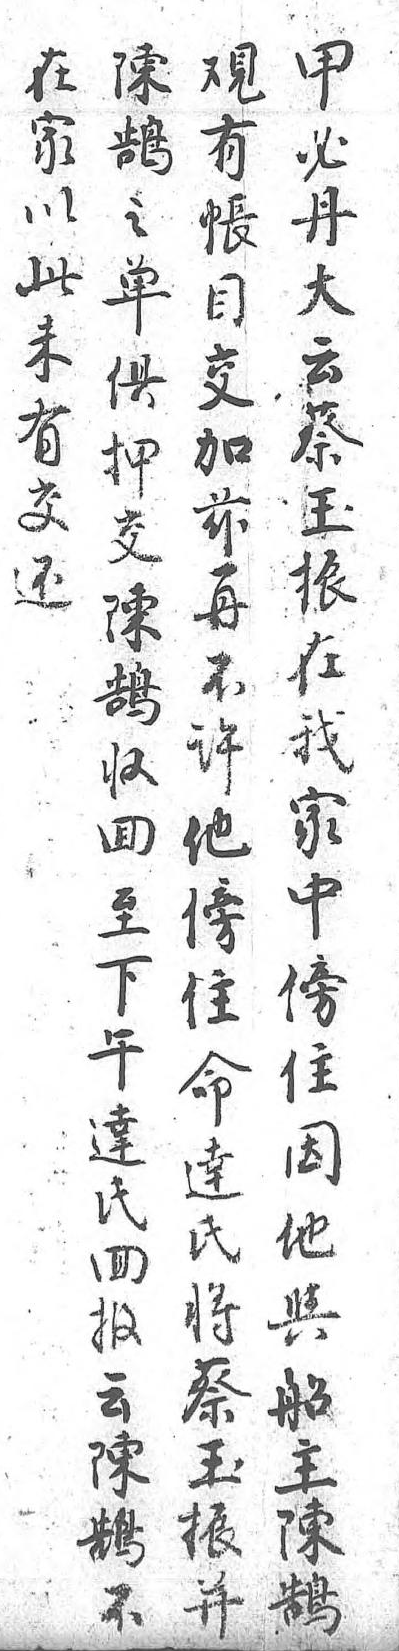 甲必丹大云蔡玉振在我家中傍住因他與船主陳鵠
覌有帳目交加茲再不许他傍住命達氏将蔡玉振并
陳鵠之单俱押交陳鵠收囬至下午達氏囬报云陳鵠不
在家以此未有交还